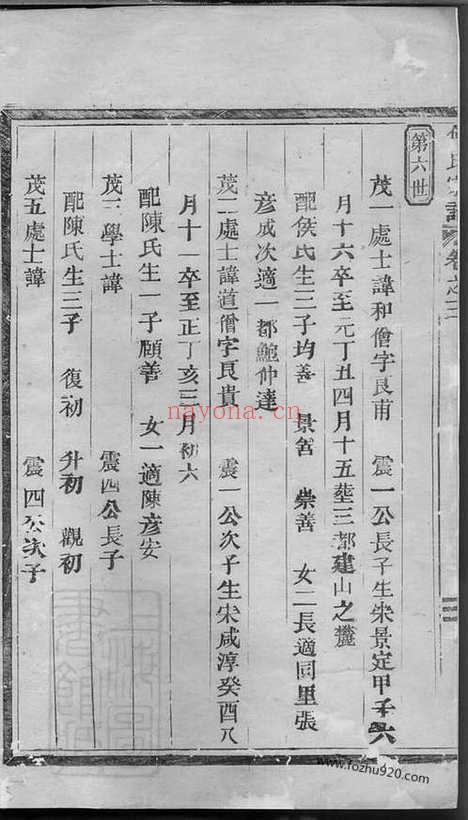 氏宗譜 卷之三
第六世
茂一處士諱和僧字良甫 震一公長子生宋景定甲子六
月十六卒至元丁丑四月十五塟三都建山之麓
配侯氏生三子均善 景善 崇善 女二長適同里張
彥成次適一都鮑仲達
茂二處士諱道僧字良貴 震一公次子生宋咸淳癸酉八
月十一卒至正丁亥三月初六
配陳氏生一子願善 女一適陳彥安
茂三學士諱 震四公長子
配陳氏生三子 復初 升初 觀初
茂五處士諱 震四公次子
nayona.cn
www.fozhu920.com